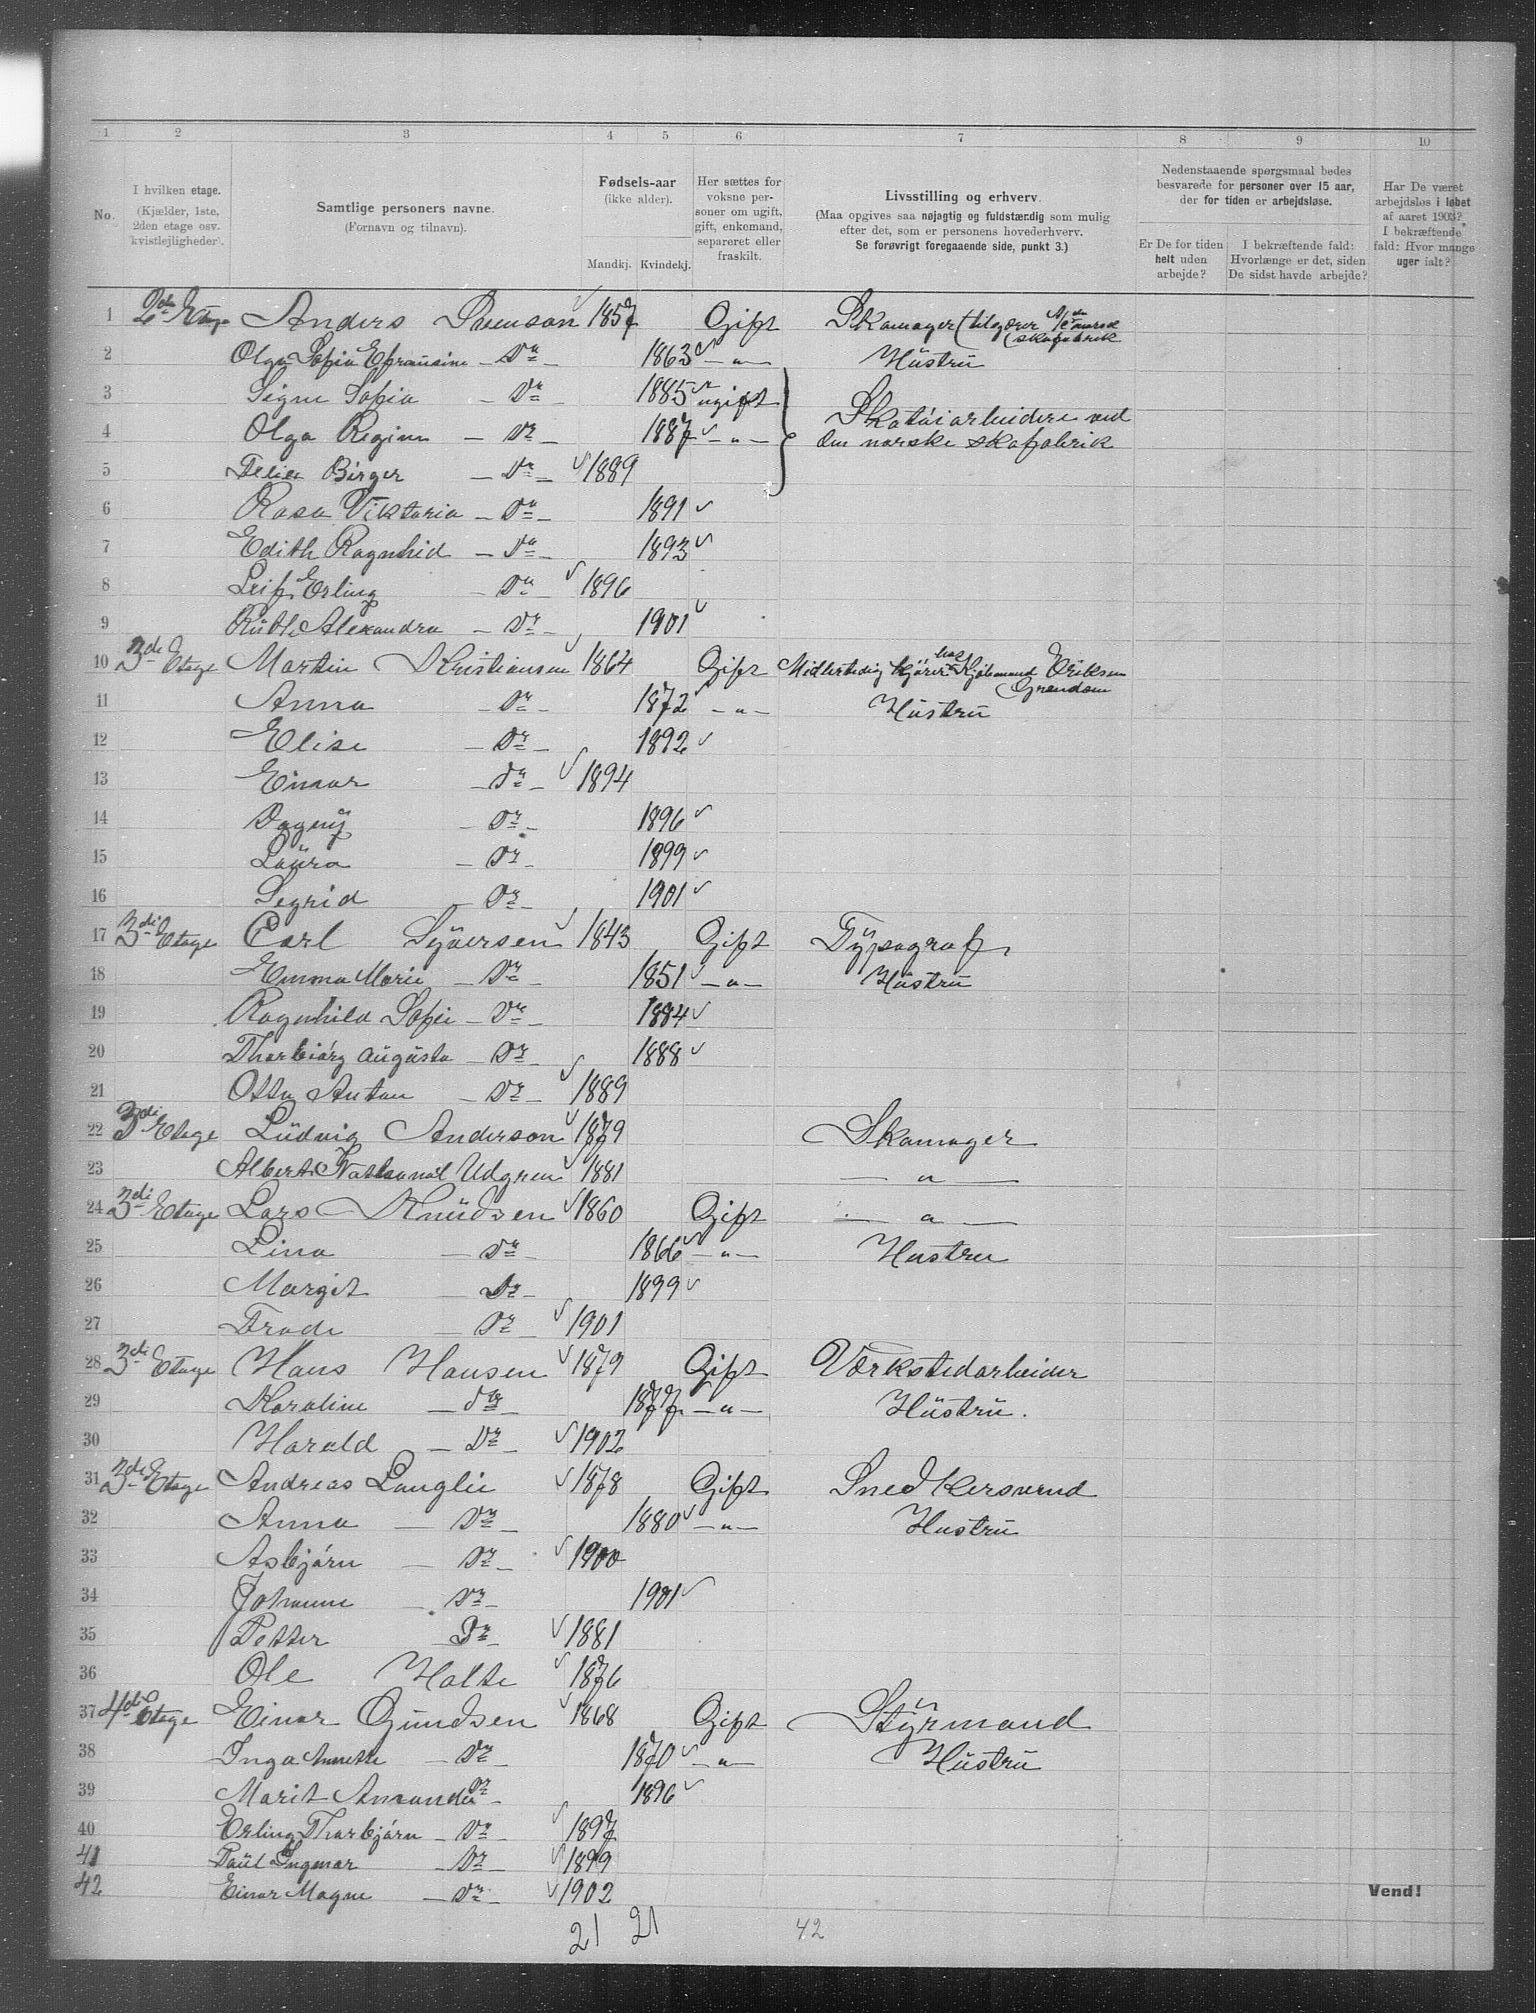 1 2 3 4 5 6 7 8 9 10
No.
I hvilken etage.
(Kjælder, 1ste,
2den etage osv.
kvistlejligheder).
Samtlige personers navne.
(Fornavn og tilnavn).
Fødsels-aar
(ikke alder).
Mandkj. Kvindekj.
Her sættes for
voksne per-
soner om ugift,
gift, enkemand,
separeret eller
fraskilt.
Livsstilling og erhverv.
(Maa opgives saa nøjagtig og fuldstændig som mulig
efter det, som er personens hovederhverv.
Se forøvrigt foregaaende side, punkt 3.)
Nedenstaaende spørgsmaal bedes
besvarede for personer over 15 aar,
der for tiden er arbejdsløse.
Er De for tiden
helt uden
arbejde?
I bekræftende fald:
Hvorlænge er det, siden
De sidst havde arbejde?
Har De været
arbejdsløs i løbet
af aaret 1903?
I bekræftende
fald: Hvor mange
uger ialt?
1 2de Etage Anders 1857 Gift Skomager
skofabrik
2 Olga Sofia - Do - 1863 - " - Hustru
3 Signe Sofia - Do - 1885 ugift
4 Olga Regine - Do - 1887 - " - Skotøiarbeidere ved
den norske skofabrik
5 Birger - Do - 1889
6 Rosa Viktoria - Do - 1891
7 Edith Ragnhid - Do - 1893
8 Leif Erling - Do - 1896
9 Ruth Alexandra - Do - 1901
10 3de Etage Martin Kristiansen 1864 Gift Midlertidig kjører hos Kjøbmand Eriksen
Grændsen
11 Anna - Do - 1872 - " - Hustru
12 Elise - Do - 1892
13 Einar - Do - 1894
14 Dagny - Do - 1896
15 Laura - Do - 1899
16 Segrid - Do - 1901
17 3di Etage Carl Syversen 1843 Gift Typograf
18 Emma Marie - Do - 1851 - " - Hustru
19 Ragnhild Sofie - Do - 1884
20 Thorbjørg Augusta - Do - 1888
21 Otto Anton - Do - 1889
22 3di Etage Ludvig Anderson 1879 Skomager
23 Albert Natanael Udgren 1881 - " -
24 3di Etage Lars Knudsen 1860 Gift - " -
25 Lina - Do - 1866 - " - Hustru
26 Margit - Do - 1899
27 Frode - Do - 1901
28 3di Etage Hans Hansen 1879 Gift Værkstedarbeider
29 Karoline - Do - 1877 - " - Hustru.
30 Harald - Do - 1902
31 3di Etage Andreas Langlie 1878 Gift Snedkersvend
32 Anna - Do - 1880 - " - Hustru
33 Asbjørn - Do - 1900
34 Johanne - Do - 1901
35 Petter Do - 1881
36 Ole Holte 1876
37 4de Etage Einar Gundsen 1868 Gift Styrmand
38 Inga Annette - Do - 1870 - " - Hustru
39 Marit Amanda Do - 1896
40 Erling Thorbjørn - Do - 1897
41 Paul Ingmar - Do - 1899
42 Einar Magne - Do - 1902
Vend!
21 21 42